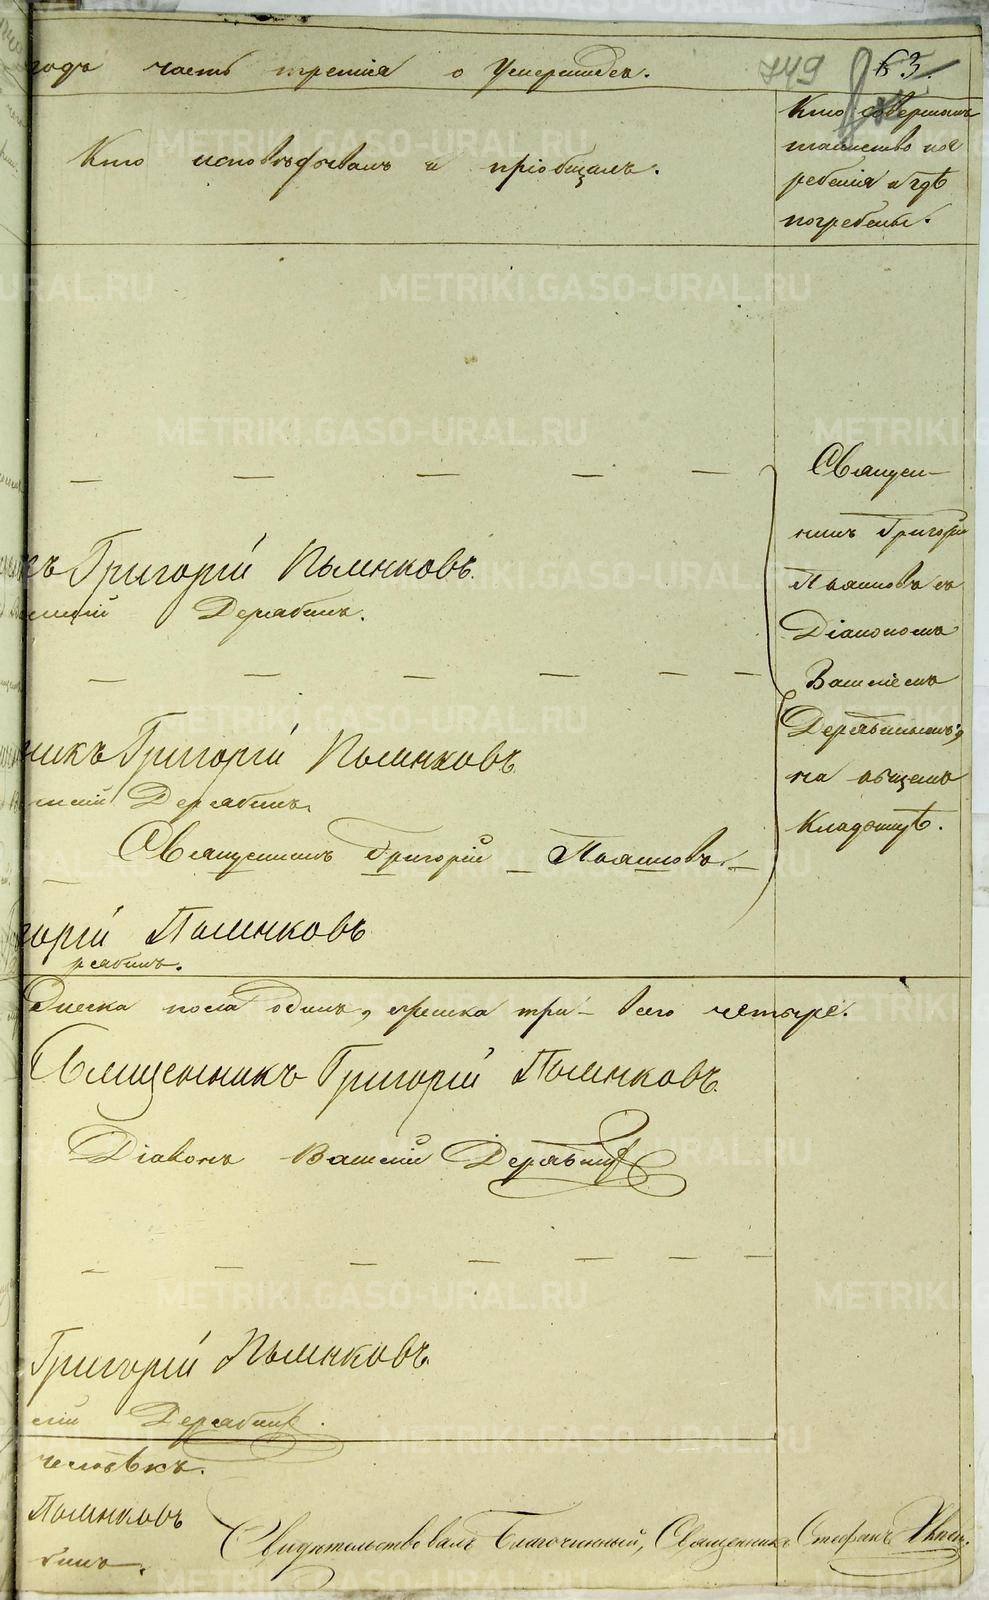 годъ часть третія о Умершихъ. 749 63.
Кто исповѣдывалъ и пріобщалъ.
Кто совершалъ
таинство пог
ребенія и гдѣ
погребены.
Священ-
никъ Григорій
Пьянковъ съ
Діакономъ
Василіемъ
Дерябинымъ,
на общемъ
Кладбищѣ.
къ Григорій Пьянковъ.
силій Дерябинъ.
никъ Григорій Пьянковъ
силій Дерябинъ.
Священникъ Григорій Пьянковъ
горій Пьянковъ
рябинъ.
пола одинъ, женска три – всего четыре.
Священникъ Григорій Пьянковъ.
Діаконъ Василій Дерябинъ
Григорій Пьянковъ.
силій Дерябинъ.
человѣкъ.
Пьянковъ
бинъ.
Свидѣтельствовалъ Благочинный, Священникъ Стефанъ
METRIKI.GASO-URAL.RU